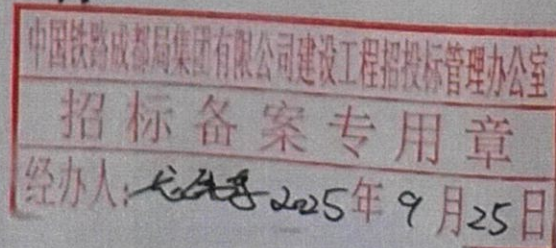 中国铁路成都局集团有限公司建设工程招投标管理办公室
招标备案专用章
经办人: 2025年9月25日